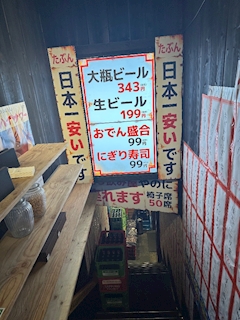 たぶん
日本一安いです
大瓶ビール
343円
生ビール
199円
おでん盛合
99円
にぎり寿司
99円
たぶん
日本一安いです
やのに
れます
椅子席
50席